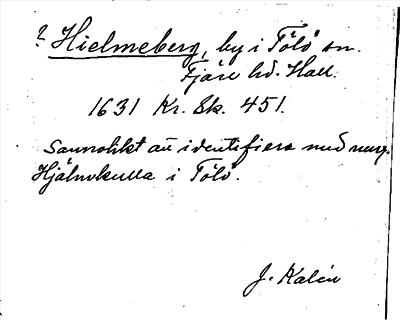 ? Hielmeberg, by i Tölö sn.
Fjäre hd. Hall.
1631 Kr. Sk. 451.
Sannolikt att identifiera med nuv.
Hjälmkulla i Tölö.
J. Kalén